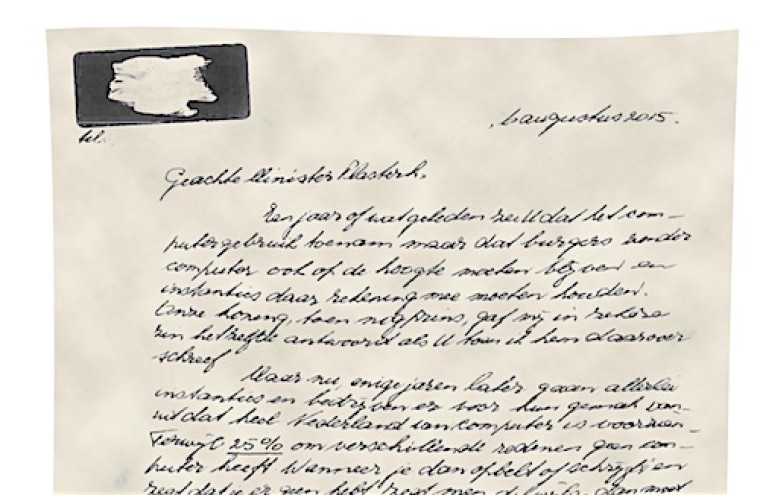 tel.
6 augustus 2015.
Geachte Minister Plasterk,
Een jaar of wat geleden zei U dat het com-
putergebruik toenam maar dat burgers zonder
computer ook op de hoogte moeten blijven en
instanties daar rekening mee moeten houden.
Onze koning, toen nog prins, gaf mij in zekere
zin hetzelfde antwoord als U toen ik hem daarover
schreef
Maar nu, enige jaren later gaan allerlei
instanties en bedrijven er voor hun gemak van-
uit dat heel Nederland van computer is voorzien.
Terwijl 25% om verschillende redenen geen com-
puter heeft Wanneer je dan opbelt of schrijft en
zegt dat je er geen hebt zegt men dan moet